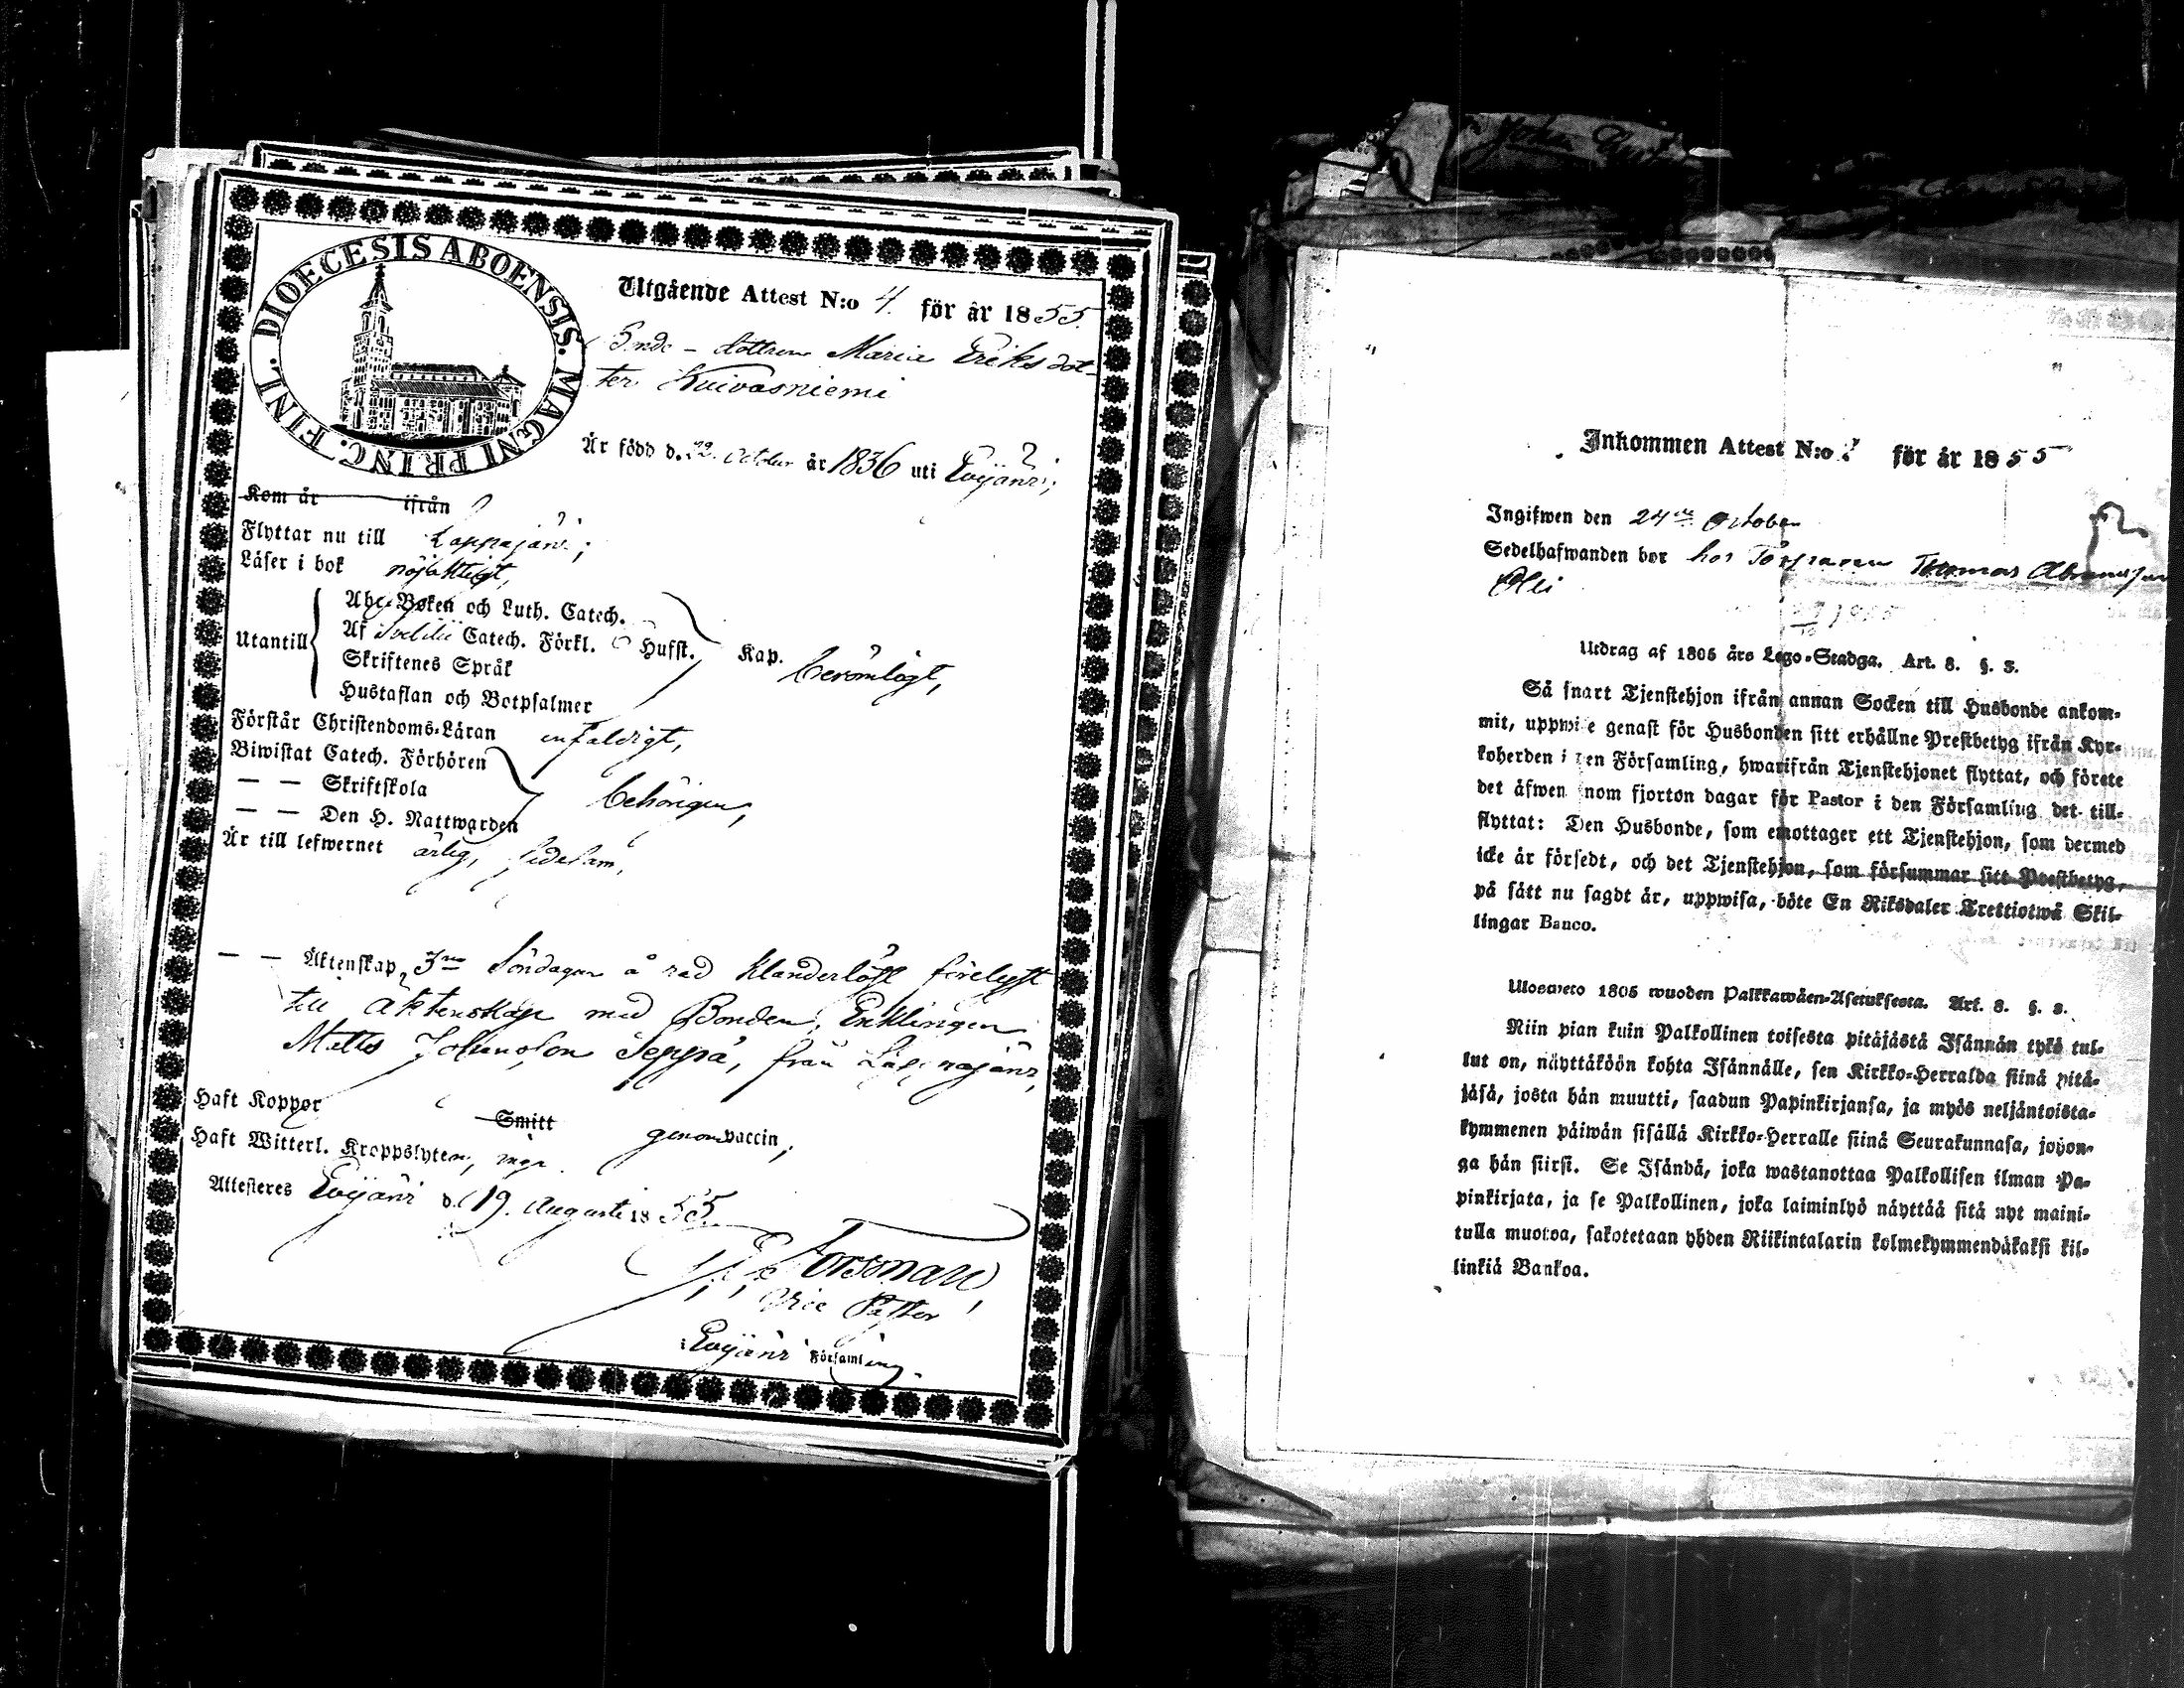 DIOECESIS ABOENSIS. MAGNI PRINC. FINL.
Utgående Attest N:o 4. för år 1855.
Bonde-dottren Maria Eriksdot-
ter Kuivasniemi
Är född d. 22. October år 1836 uti Evijärvi;
Kom år ifrån
Flyttar nu till Lappajärvi;
Läser i bok nöjaktigt,
Utantill
Abc-Boken och Luth. Catech.
Af Svebilii Catech. Förkl. 6 Hufst. Kap. berömligt,
Skriftenes Språk
Hustaflan och Botpsalmer
Förstår Christendoms-Läran enfaldigt,
Biwistat Catech. Förhören
— — Skriftskola behörigen,
— — Den H. Nattwarden
Är till lefwernet ärlig, sedesam,
— — Äktenskap, 3ne Söndagar å rad klanderlöst förelyst
till äktenskap med Bonden, Enklingen
Matts Johansson Seppä, från Lappajärvi,
Haft Koppor Smitt genom vaccin;
Haft Witterl. Kroppslyten, inga.
Attesteres Evijärvi d. 19. Augusti 1855.
Forsman,
Vice Pastor
Evijärvi Församling.
Inkommen Attest N:o för år 1855
Ingifwen den 24de October
Sedelhafwanden bor hos Torparen Thomas Abramsson
Utdrag af 1805 års Lego-Stadga. Art. 8. §. 3.
Så snart Tjenstehjon ifrån annan Socken till Husbonde ankom-
mit, uppwise genast för Husbonden sitt erhållne Prestbetyg ifrån Kyr-
koherden i den Församling, hwarifrån Tjenstehjonet flyttat, och förete
det äfwen inom fjorton dagar för Pastor i den Församling det till-
flyttat: Den Husbonde, som emottager ett Tjenstehjon, som dermed
icke är försedt, och det Tjenstehjon, som försummar sitt Prestbetyg,
på sätt nu sagdt är, uppwisa, böte En Riksdaler Trettiotwå Skil-
lingar Banco.
Ulosweto 1805 wuoden Palkkawäen-Asetuksesta. Art. 8. §. 3.
Niin pian kuin Palkollinen toisesta pitäjästä Isännän tykö tul-
lut on, näyttäköön kohta Isännälle, sen Kirkko-Herralda siinä pitä-
jäsä, josta hän muutti, saadun Papinkirjansa, ja myös neljäntoista-
kymmenen päiwän sisällä Kirkko-Herralle siinä Seurakunnasa, johon-
ga hän siirsi. Se Isändä, joka wastanottaa Palkollisen ilman Pa-
pinkirjata, ja se Palkollinen, joka laiminlyö näyttää sitä nyt maini-
tulla muotoa, sakotetaan yhden Riikintalarin kolmekymmendäkaksi kil-
linkiä Bankoa.